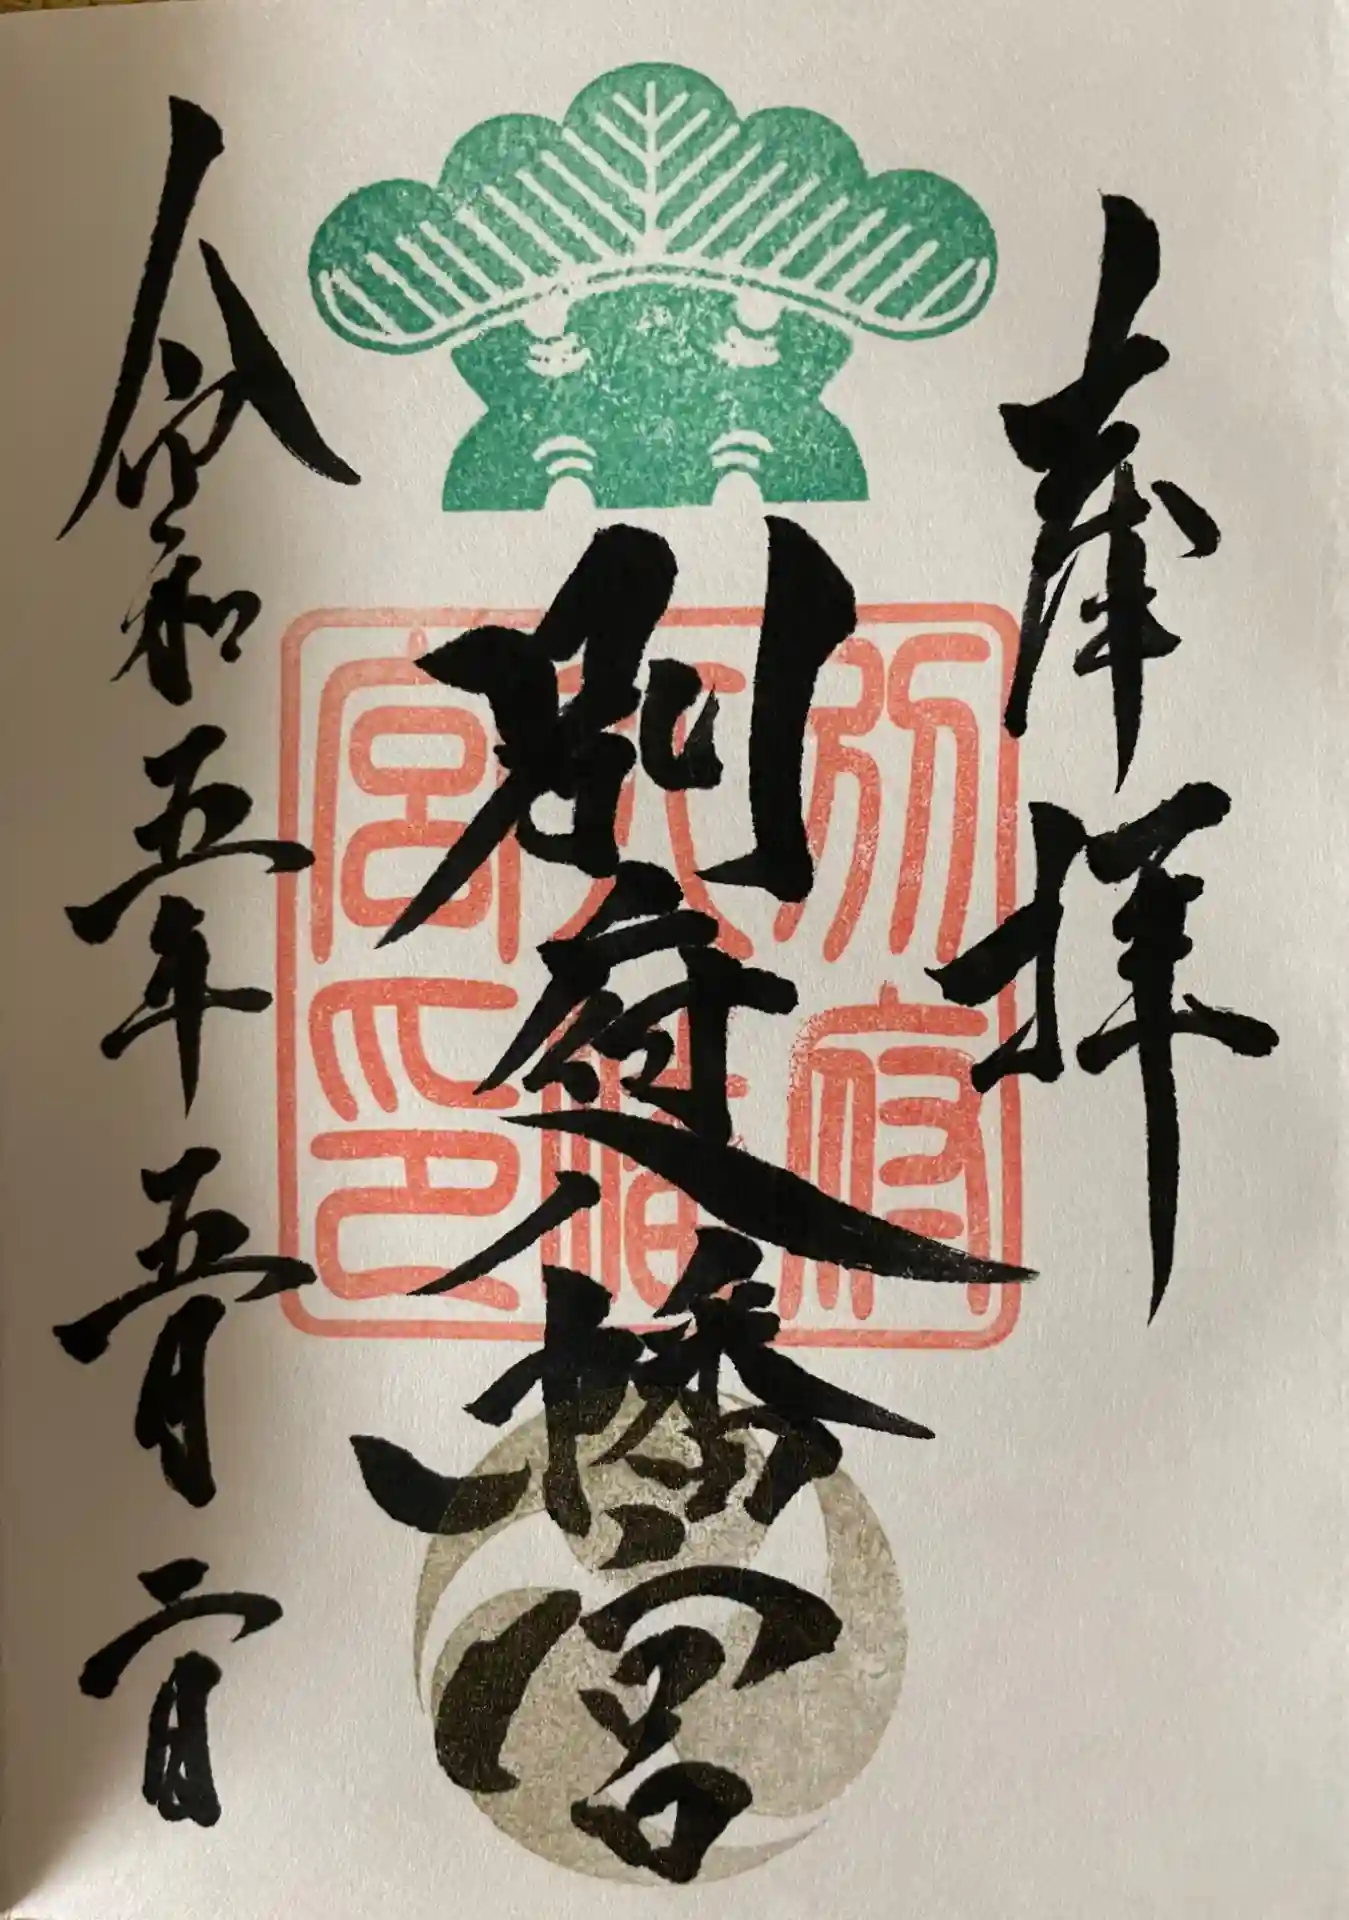 奉拝
別府八幡宮
別府
八幡
宮印
令和五年五月二日